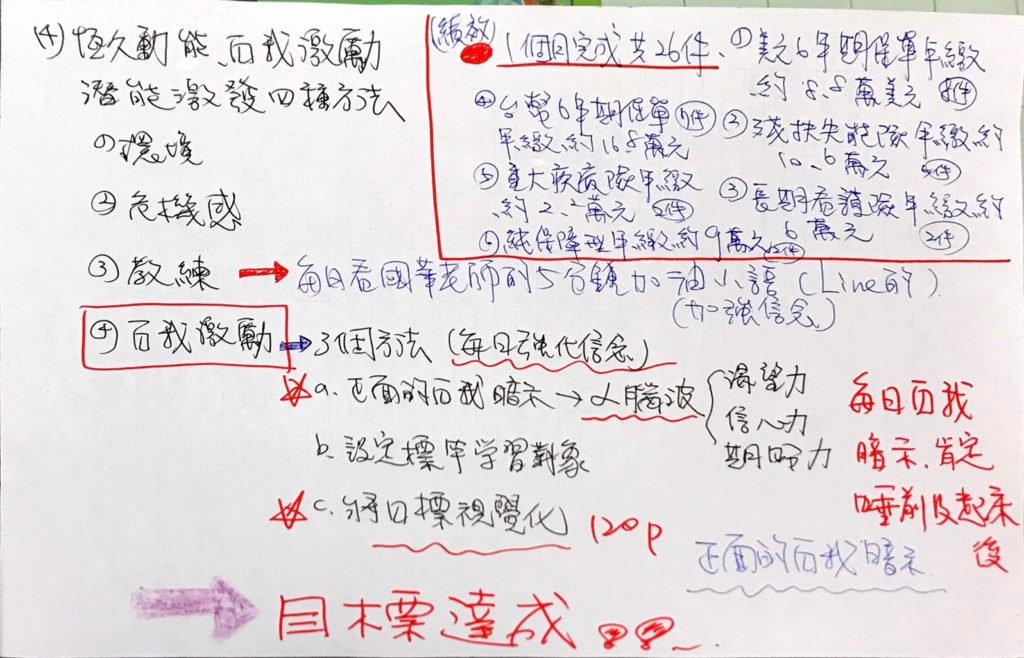 (4) 恆久動能、自我激勵
潛能激發四種方法
①環境
②危機感
③教練 → 每日看國華老師的5分鐘加油小語 (Line的)
(加強信念)
④自我激勵 → 3個方法 (每日強化信念)
a. 正面的自我暗示→α腦波
渴望力
信心力
期待力
b. 設定標竿学習對象
c. 將目標視覺化 120p
每日自我
暗示、肯定
睡前及起床
後
正面的自我暗示
目標達成
(績效)
1個月完成共26件、
①美元6年期保單年繳
約8.8萬美元 8件
②殘扶失能險年繳約
10.6萬元
③長期看護險年繳約
6萬元 2件
④台幣6年期保單
年繳約168萬元
⑤重大疾病險年繳
約2.2萬元 2件
⑥純保障型年繳約9萬元